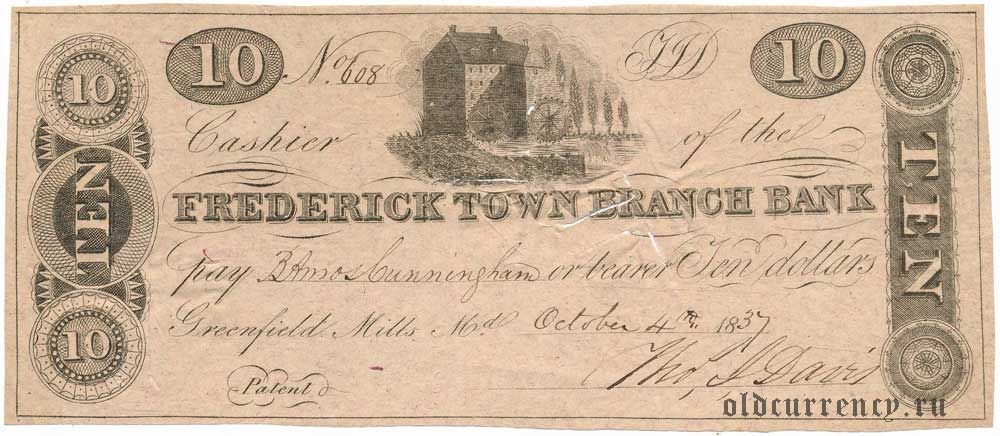 10 10 No. 608 TD 10
Cashier of the
TEN FREDERICK TOWN BRANCH BANK TEN
pay Amos Cunningham or bearer Ten dollars
10 Greenfield Mills Md October 4th 1837
Tho, J Davis
Patent
oldcurrency.ru